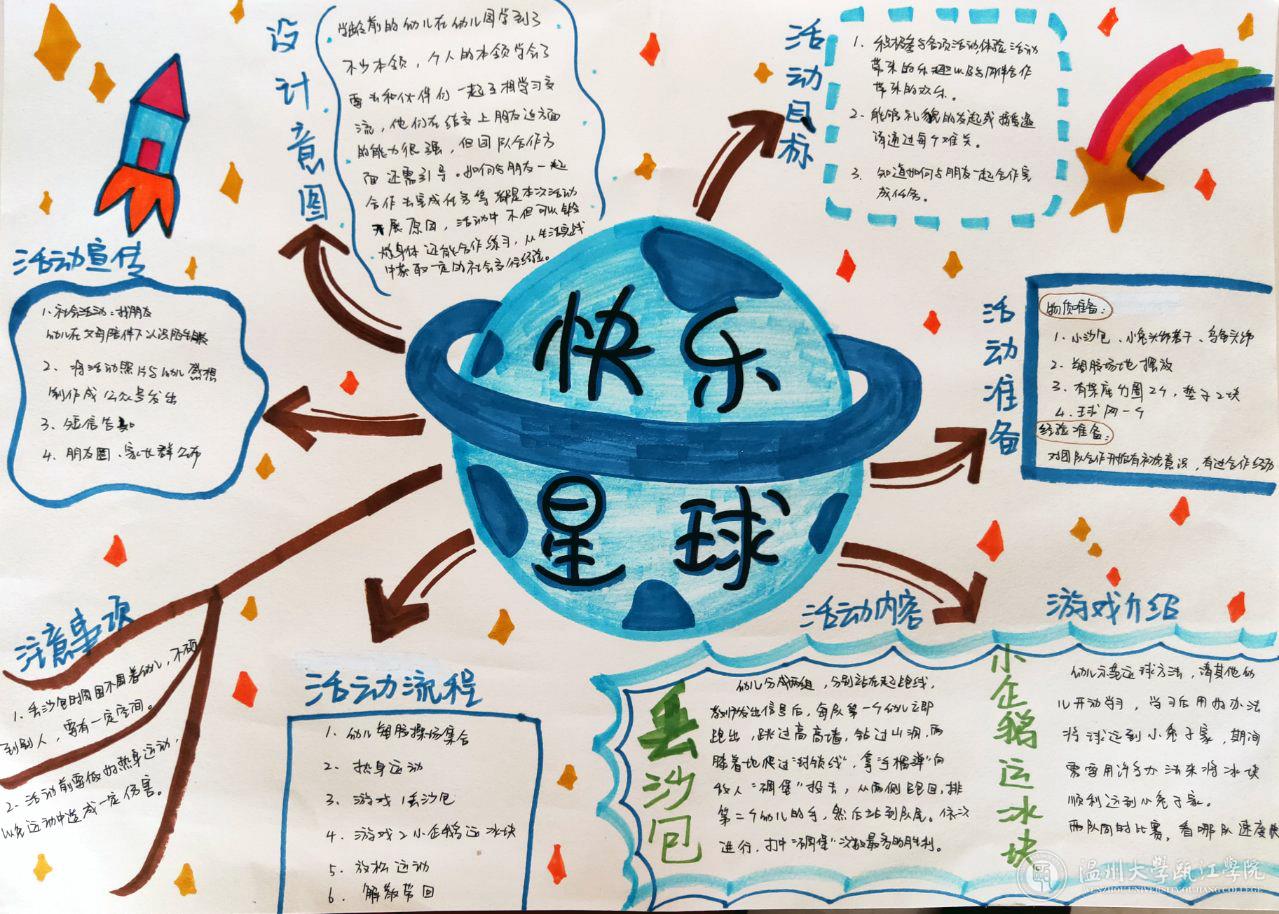 快乐
星球
设计意图
学龄前的幼儿在幼儿园学到了
不少本领，个人的本领学会了
要去和伙伴们一起互相学习交
流，他们在结交上朋友这方面
的能力很强，但团队合作方
面还需引导。如何与朋友一起
合作去完成任务等都是本次活动
开展原因，活动中不但可以锻
炼身体还能合作练习，从生活实战
中获取一定的社会交往经验。
活动目标
1. 积极参与各项活动体验活动
带来的乐趣以及与同伴合作
带来的欢乐。
2. 能够礼貌的发起或接受邀
请通过每个难关。
3. 知道如何与朋友一起合作完
成任务。
活动宣传
1. 社会活动：找朋友
幼儿在父母陪伴下以
2. 将活动照片与幼儿感想
制作成公众号发出
3. 短信告知
4. 朋友圈、家长群公布
活动准备
物质准备：
1. 小沙包、小兔头饰若干、乌龟头饰
2. 塑胶场地摆放
3. 有架座力圈2个，垫子2块
4. 球网一个
经验准备：
对团队合作开始有初步意识，有过合作经历
注意事项
1. 丢沙包时周围不围着幼儿，不砸
到别人，需有一定空间。
2. 活动前要做好热身运动，
以免运动中造成一定伤害。
活动流程
1. 幼儿塑胶操场集合
2. 热身运动
3. 游戏1丢沙包
4. 游戏2小企鹅运冰块
5. 放松运动
6. 解散带回
活动内容
游戏介绍
丢沙包
幼儿分成两组，分别站在起跑线，
教师发出信息后，每队第一个幼儿立即
跑出，跳过高高墙，钻过山洞，两
膝着地爬过“封锁线”，拿“手榴弹”向
敌人“碉堡”投去，从两侧跑回，拍
第二个幼儿的手，然后站到队尾。依次
进行，打中“碉堡”次数最多的胜利。
小企鹅运冰块
幼儿示范运球方法，请其他幼
儿开动，学习后用好办法
将球运到小兔子家，期间
需要用许多办法来将冰块
顺利运到小兔子家。
两队同时比赛，看哪队速度快
温州大学瓯江学院
WENZHOU UNIVERSITY OUJIANG COLLEGE